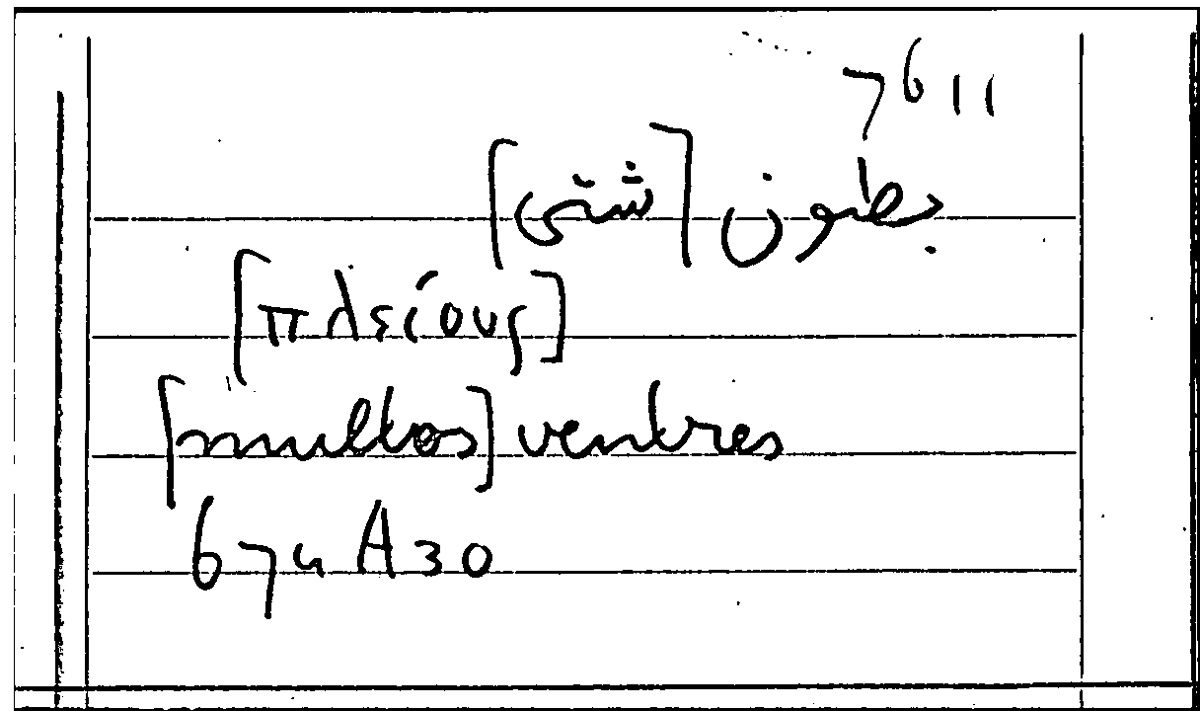 7611
بطون [شتى]
[πλείους]
[multos] ventres
674 A 30